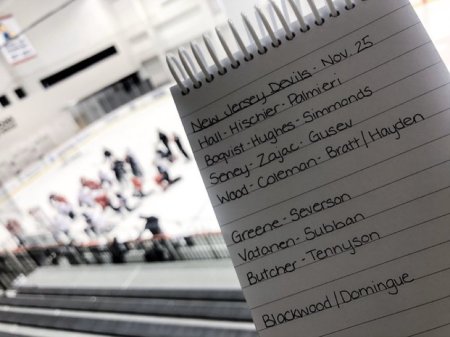 New Jersey Devils - Nov. 25
Hall - Hischier - Palmieri
Boqvist - Hughes - Simmonds
Seney - Zajac - Gusev
Wood - Coleman - Bratt / Hayden
Greene - Severson
Vatanen - Subban
Butcher - Tennyson
Blackwood / Domingue